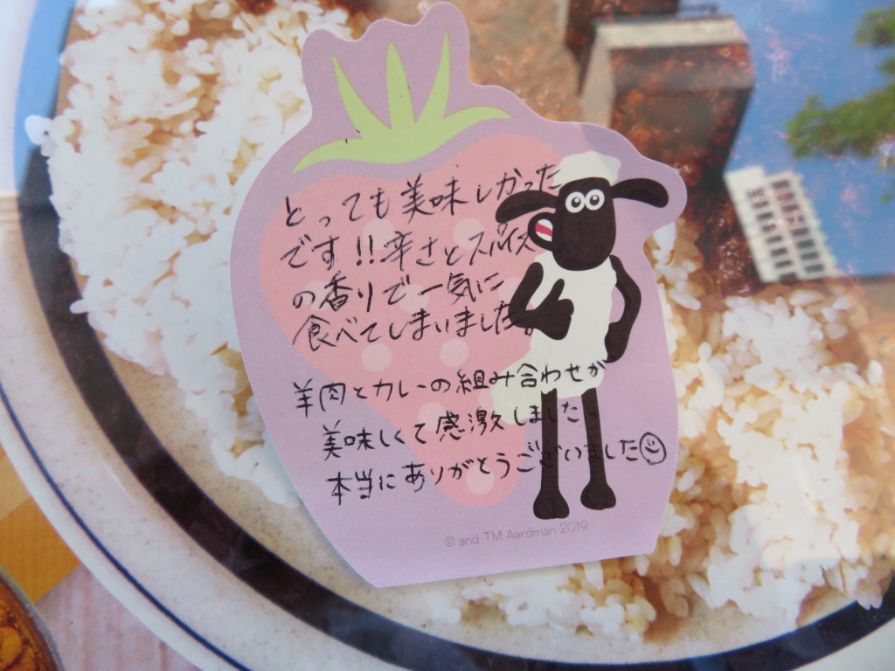 とっても美味しかった
です!!辛さとスパイス
の香りで一気に
食べてしまいました。
羊肉とカレーの組み合わせが
美味しくて感激しました。
本当にありがとうございました
© and TM Aardman 2019